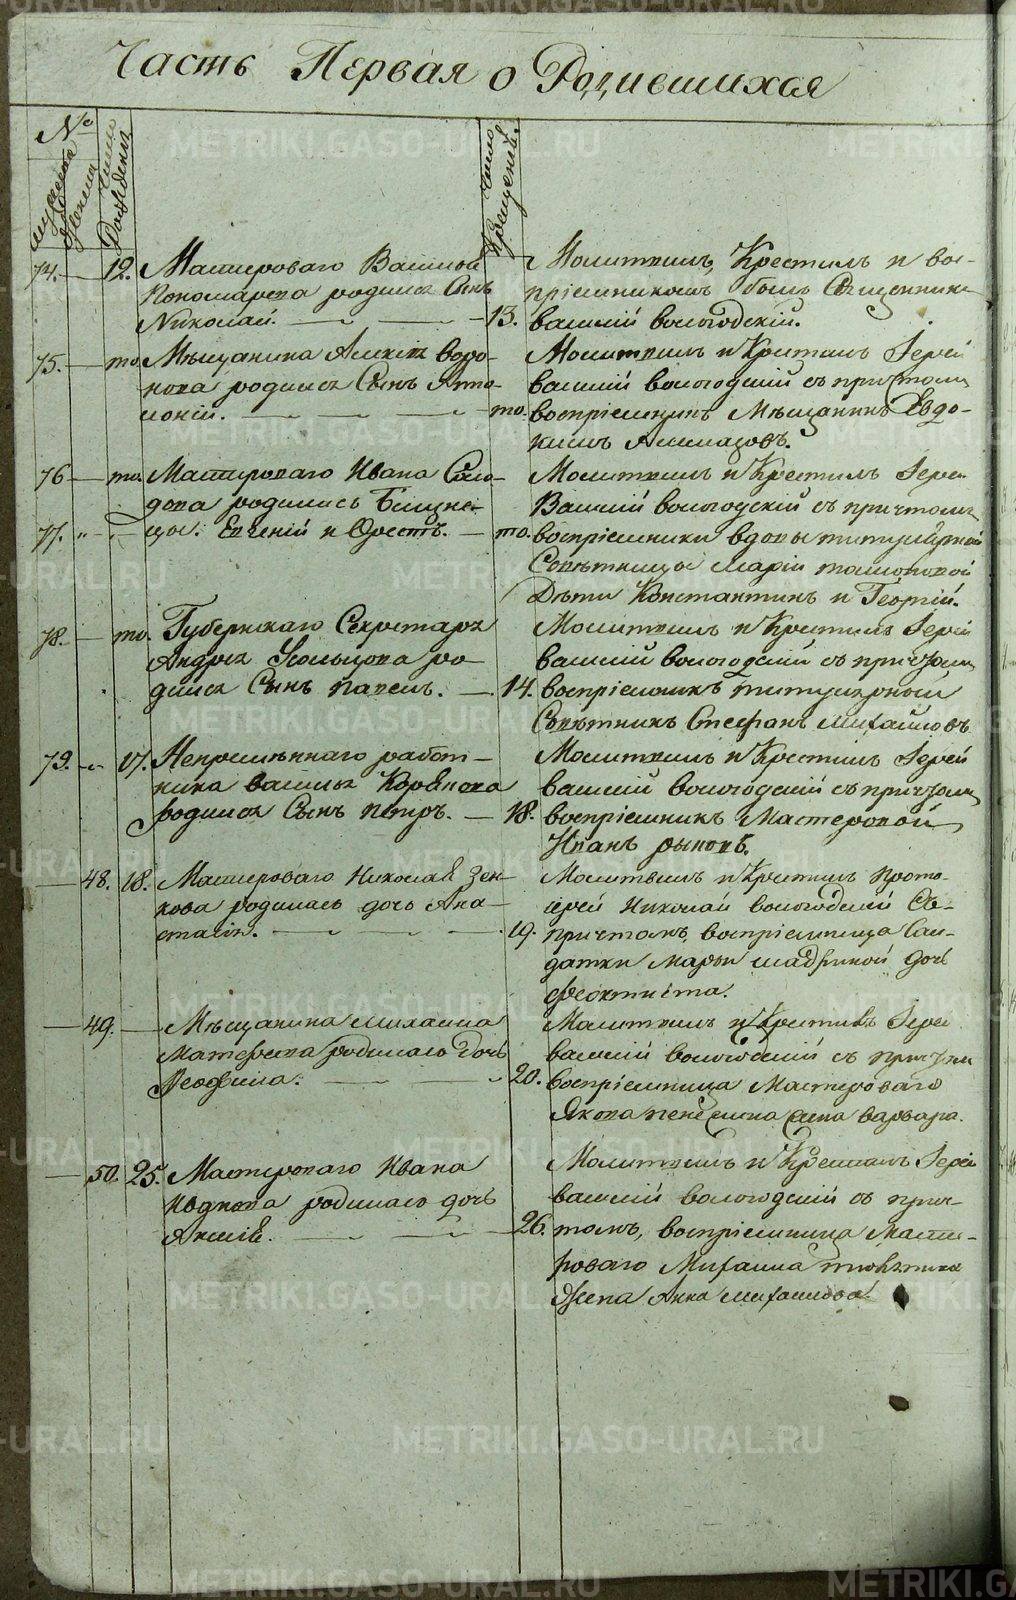 Часть Первая о Родившихся
№
мужеска
женска
число
Рожденія
число
Крещенія
74. 12. Мастероваго Василья
Пономарева родился Сынъ
Николай. 13.
Молитвилъ, Крестилъ и вос-
пріемникомъ былъ Священникъ
Василій Вологодскій.
75. то. Мѣщанина Алексѣя Воро-
нова родился Сынъ Аппо-
лоній. то.
Молитвилъ и Крестилъ Іерей
Василій Вологодскій съ причтомъ
воспріемникъ Мѣщанинъ Евдо-
кимъ
76 то. Мастероваго Ивана
родились Близне-
77. цы: Евгеній и Орестъ. то.
Молитвилъ и Крестилъ Іерей
Василій Вологодскій съ причтомъ
воспріемники вдовы титулярной
Совѣтницы Маріи
Дѣти Константинъ и Георгій.
78. то. Губернскаго Секретаря
Андрея Усольцова ро-
дился Сынъ Павелъ. 14.
Молитвилъ и Крестилъ Іерей
Василій Вологодскій съ причтомъ
воспріемникъ Титулярной
Совѣтникъ Стефанъ Михайловъ
79. 17. Непремѣннаго работ-
ника Василья
родился Сынъ Петръ. 18.
Молитвилъ и Крестилъ Іерей
Василій Вологодскій съ причтомъ
воспріемникъ Мастеровой
Иванъ
48. 18. Мастероваго Николая Зен-
кова родилась дочь Ана-
стасія. 19.
Молитвилъ и Крестилъ Прото-
іерей Николай Вологодскій Съ
причтомъ, воспріемница Сол-
датки Марьи Шадриной дочь
Феоктиста.
49. Мѣщанина Михаила
Матвѣева родилась Дочь
Феофила. 20.
Молитвилъ и Крестилъ Іерей
Василій Вологодскій съ причтомъ
воспріемница Мастероваго
Якова жена Варвара.
50. 25. Мастероваго Ивана
родилась дочь
26.
Молитвилъ и Крестилъ Іерей
Василій Вологодскій съ прич-
томъ, воспріемница Масте-
роваго Михаила
Жена Анна Михайлова.
METRIKI.GASO-URAL.RU